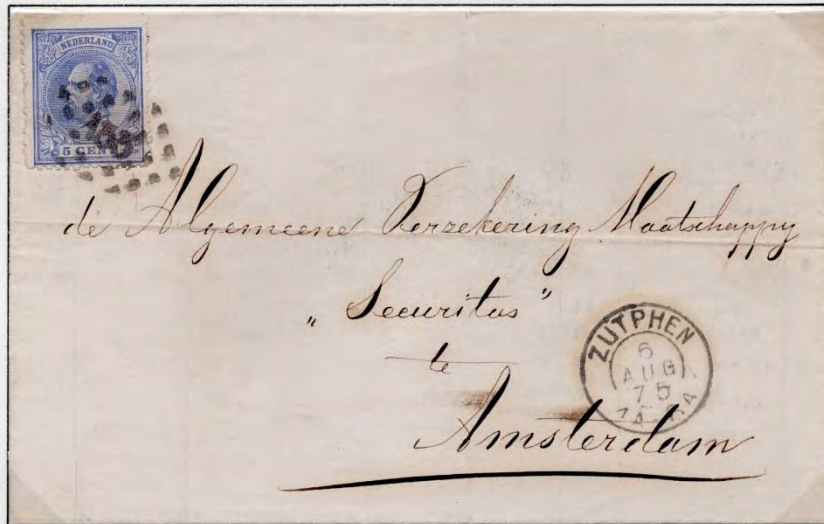 NEDERLAND
5 CENT
de Algemeene Verzekering Maatschappy
„Securitas”
te
Amsterdam
ZUTPHEN
6
AUG
75